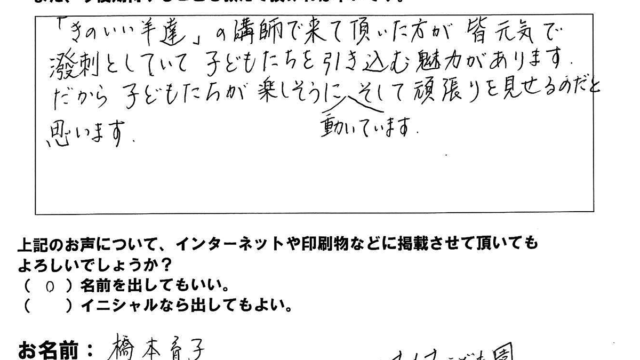 「きのいい羊達」の講師で来て頂いた方が 皆元気で
潑剌としていて 子どもたちを引き込む魅力があります.
だから 子どもたちが 楽しそうに そして 頑張りを見せるのだと
動いています.
思います.
上記のお声について、インターネットや印刷物などに掲載させて頂いても
よろしいでしょうか？
( O ) 名前を出してもいい。
( ) イニシャルなら出してもよい。
お名前： 橋本育子